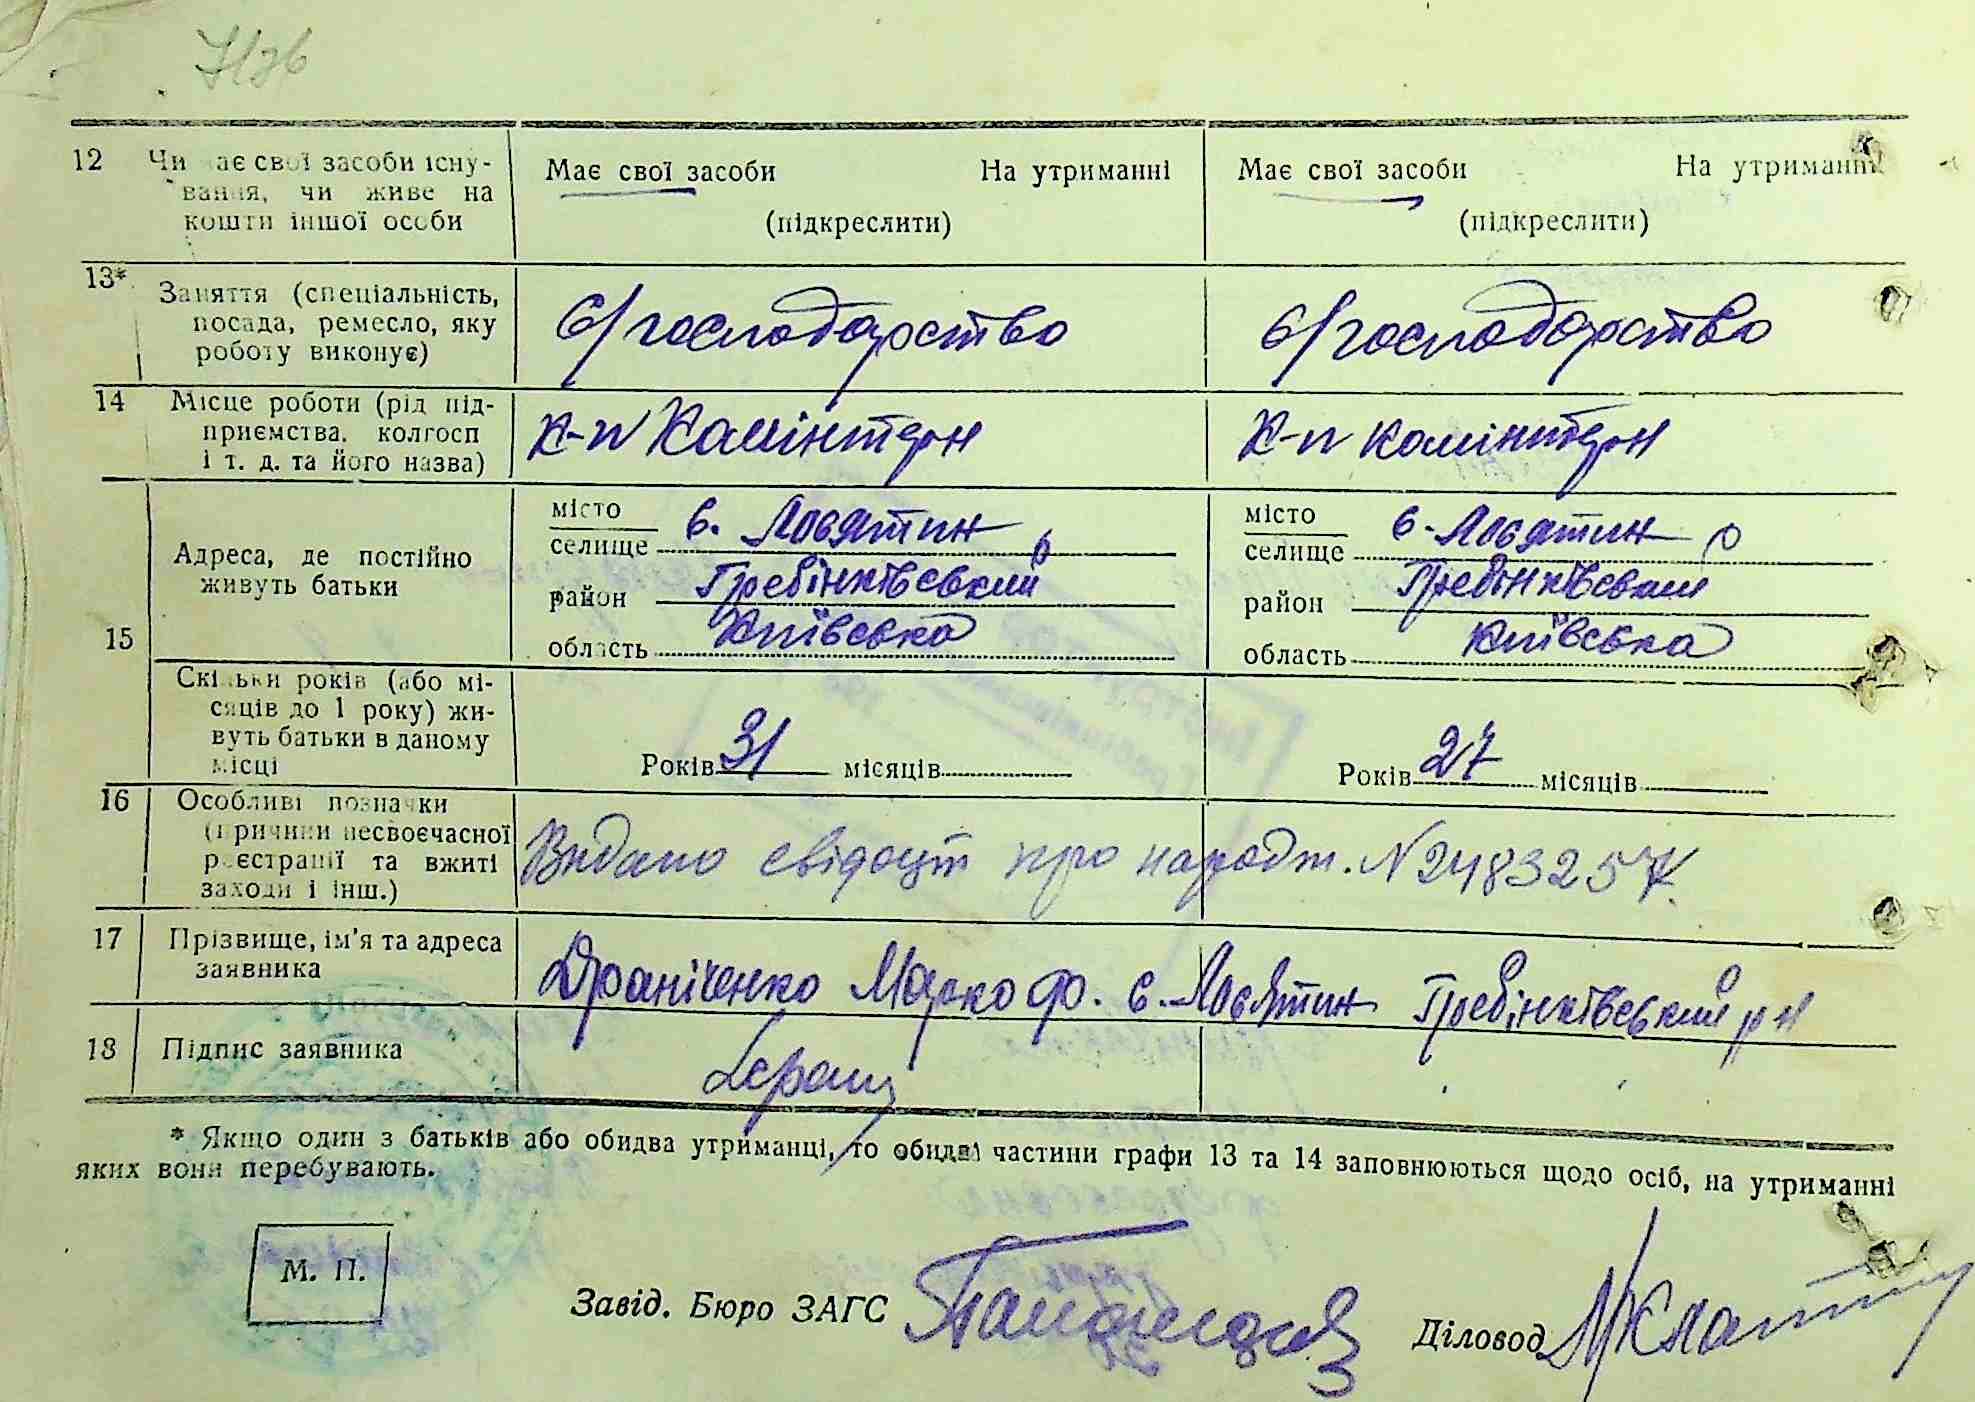 12 Чи має свої засоби існу-
вання, чи живе на
кошти іншої особи
Має свої засоби На утриманні
(підкреслити)
Має свої засоби На утриманні
(підкреслити)
13* Заняття (спеціальність,
посада, ремесло, яку
роботу виконує)
с/господарство
с/господарство
14 Місце роботи (рід під-
приємства, колгосп
і т. д. та його назва)
к-п Комінтерн
к-п комінтерн
15
Адреса, де постійно
живуть батьки
місто
селище с. Лосятин
район Гребінківський
область Київська
місто
селище с. Лосятин
район Гребінківський
область Київська
Скільки років (або мі-
сяців до 1 року) жи-
вуть батьки в даному
місці
Років 31 місяців
Років 27 місяців
16 Особливі позначки
(причини несвоєчасної
реєстрації та вжиті
заходи і інш.)
Видано свідоцт про народж. N 248325
17 Прізвище, ім'я та адреса
заявника
Драніченко Марко Ф. с. Лосятин Гребінківський р-н
18 Підпис заявника
* Якщо один з батьків або обидва утриманці, то обидві частини графи 13 та 14 заповнюються щодо осіб, на утриманні
яких вони перебувають.
М. П.
Завід. Бюро ЗАГС
Діловод